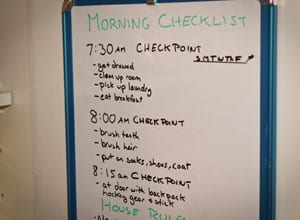 MORNING CHECKLIST
7:30AM CHECKPOINT
SMTWTF
- get dressed
- clean up room
- pick up laundry
- eat breakfast
8:00AM CHECKPOINT
- brush teeth
- brush hair
- put on socks, shoes, coat
8:15AM CHECKPOINT
- at door with backpack
hockey gear & stick
HOUSE RULES